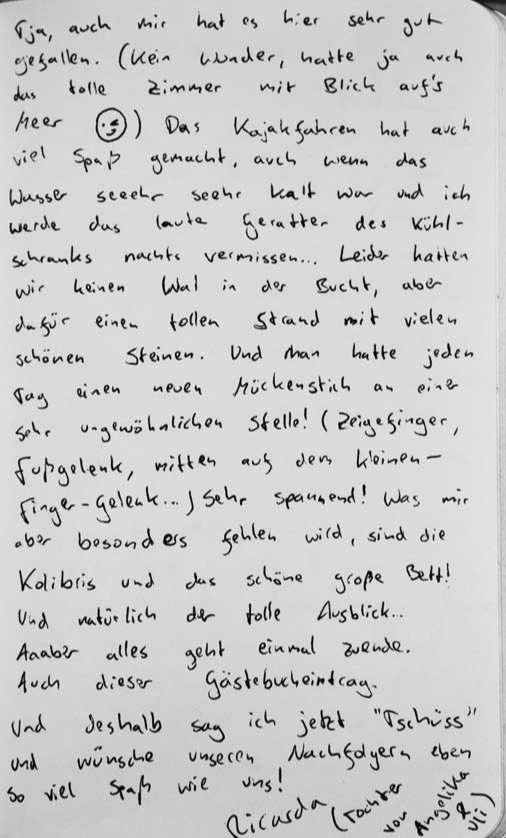 Tja, auch mir hat es hier sehr gut
gefallen. (Kein Wunder, hatte ja auch
das tolle Zimmer mit Blick auf's
Meer 😉) Das Kajakfahren hat auch
viel Spaß gemacht, auch wenn das
Wasser seeehr seehr kalt war und ich
werde das laute Geratter des Kühl-
schranks nachts vermissen... Leider hatten
wir keinen Wal in der Bucht, aber
dafür einen tollen Strand mit vielen
schönen Steinen. Und man hatte jeden
Tag einen neuen Mückenstich an einer
sehr ungewöhnlichen Stelle! (Zeigefinger,
Fußgelenk, mitten auf dem kleinen-
Finger-Gelenk...) Sehr spannend! Was mir
aber besonders fehlen wird, sind die
Kolibris und das schöne große Bett!
Und natürlich der tolle Ausblick...
Aaaber alles geht einmal zuende.
Auch dieser Gästebucheintrag.
Und deshalb sag ich jetzt "Tschüss"
und wünsche unseren Nachfolgern eben
so viel Spaß wie uns!
Ricarda (Tochter
von Angelika
& Uli)